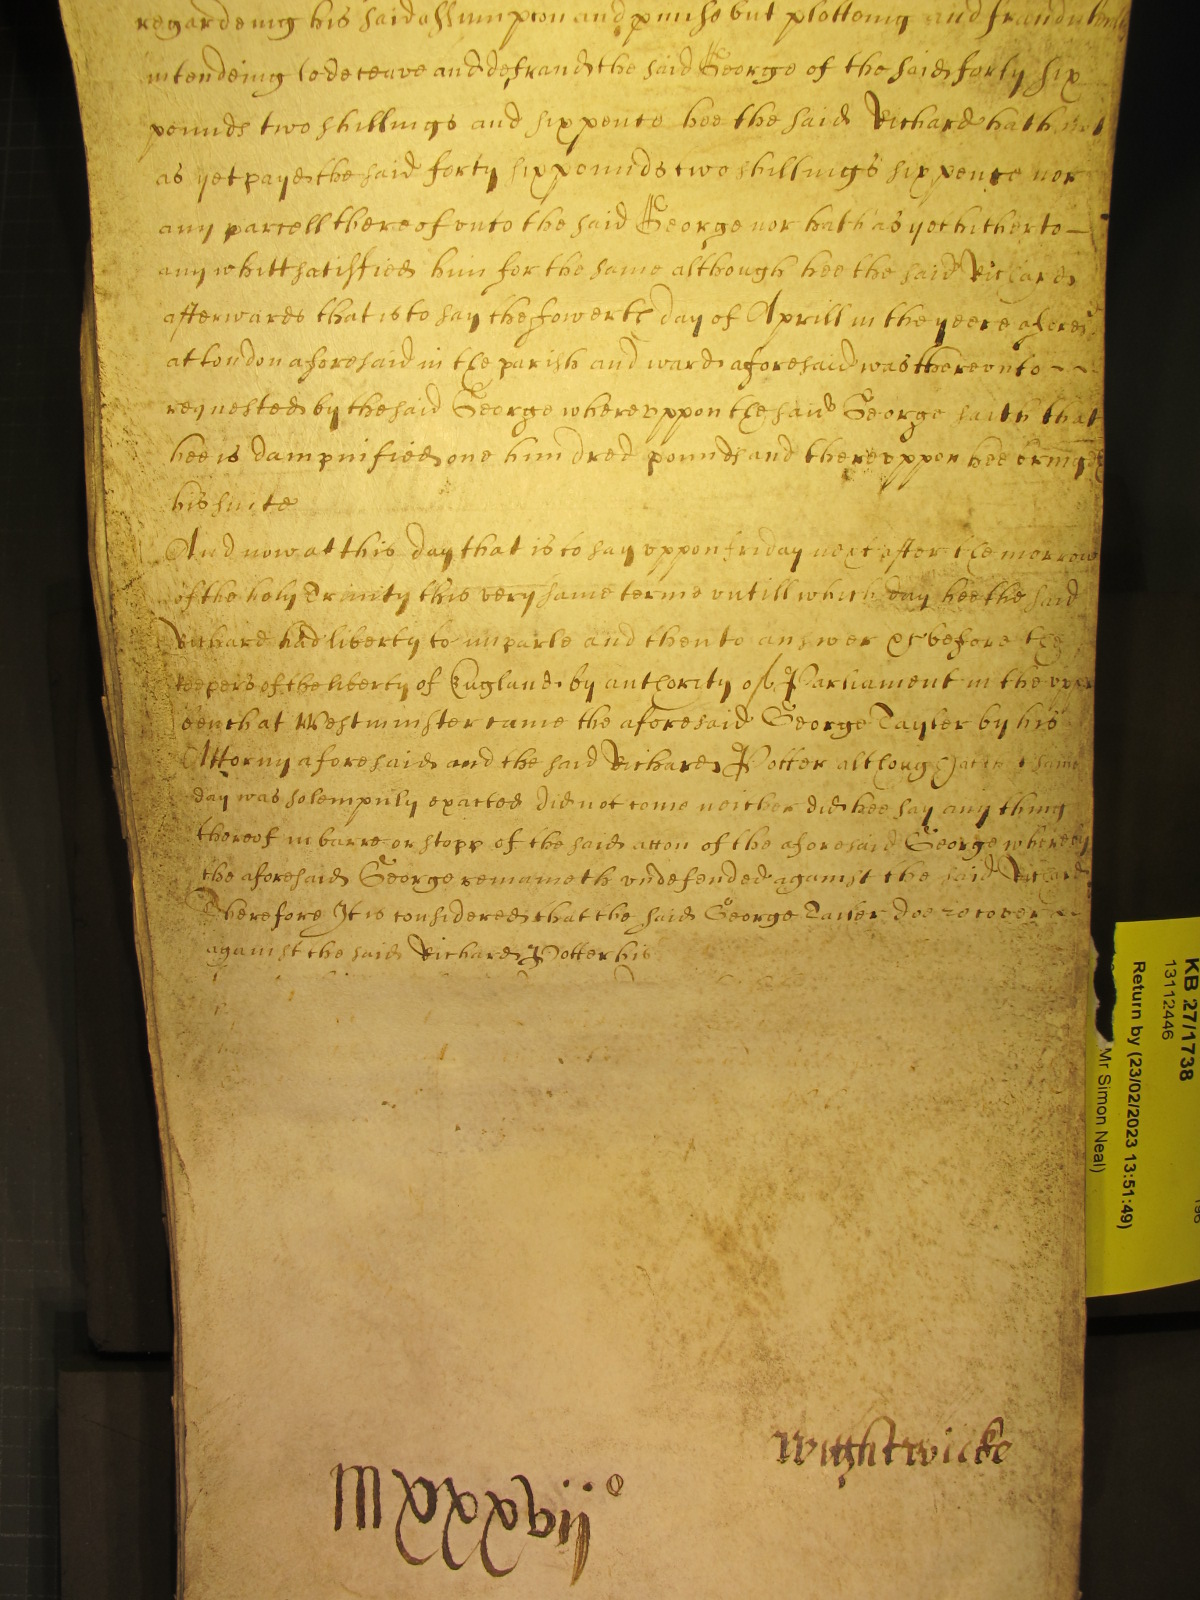 regardeing his said assumpcon and pmise but plotteing and fraudulently
intendeing to deceave and defraud the said George of the said forty six
pounds two shillings and sixpence hee the said Richard hath not
as yet payd the said forty six pounds two shillings sixpence nor
any parcell thereof unto the said George nor hath as yet hitherto
any whitt satisfied him for the same although hee the said Richard
afterwards that is to say the fowerth day of Aprill in the yeere aforesd
at London aforesaid in the parish and ward aforesaid was therevnto
requested by the said George wherevppon the said George saith that
hee is dampnified one hundred pounds and therevppon hee bringeth
his suite
And now at this day that is to say vppon friday next after the morrow
of the holy Trinity this very same terme vntill which day hee the said
Richard had liberty to imparle and then to answer &c before the
keepers of the liberty of England by authority of Parliament in the vpp
bench at Westminster came the aforesaid George Tayler by his
Attorny aforesaid and the said Richard Potter although at the same
day was solempnly exacted did not come neither did hee say any thing
thereof in barre or stopp of the said accon of the aforesaid George whereby
the aforesaid George remaineth vndefended against the said Richard
Therefore It is considered that the said George Tayler doe recover
against the said Richard Potter his
Wightwicke
Mxxxvijo
KB 27/1738
13112446
Return by (23/02/2023 13:51:49)
Mr Simon Neal)